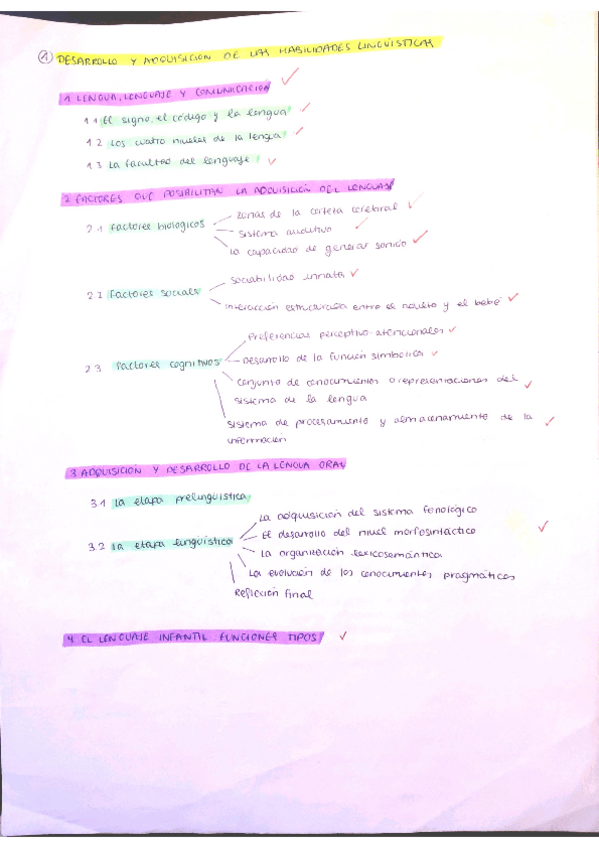 ① DESARROLLO Y ADQUISICIÓN DE LAS HABILIDADES LINGÜÍSTICAS
1. LENGUA, LENGUAJE Y COMUNICACIÓN
1.1 El signo, el código y la lengua
1.2 Los cuatro niveles de la lengua
1.3 La facultad del lenguaje
2. FACTORES QUE POSIBILITAN LA ADQUISICIÓN DEL LENGUAJE
2.1 Factores biológicos
zonas de la corteza cerebral
sistema auditivo
la capacidad de generar sonido
2.2 Factores sociales
sociabilidad innata
interacción estructurada entre el adulto y el bebé
2.3 Factores cognitivos
Preferencias perceptivo-atencionales
Desarrollo de la función simbólica
conjunto de conocimientos o representaciones del
sistema de la lengua
sistema de procesamiento y almacenamiento de la
información
3. ADQUISICIÓN Y DESARROLLO DE LA LENGUA ORAL
3.1 La etapa prelingüística
3.2 La etapa lingüística
La adquisición del sistema fonológico
El desarrollo del nivel morfosintáctico
La organización lexicosemántica
La evolución de los conocimientos pragmáticos
Reflexión final
4. EL LENGUAJE INFANTIL: FUNCIONES TIPOS